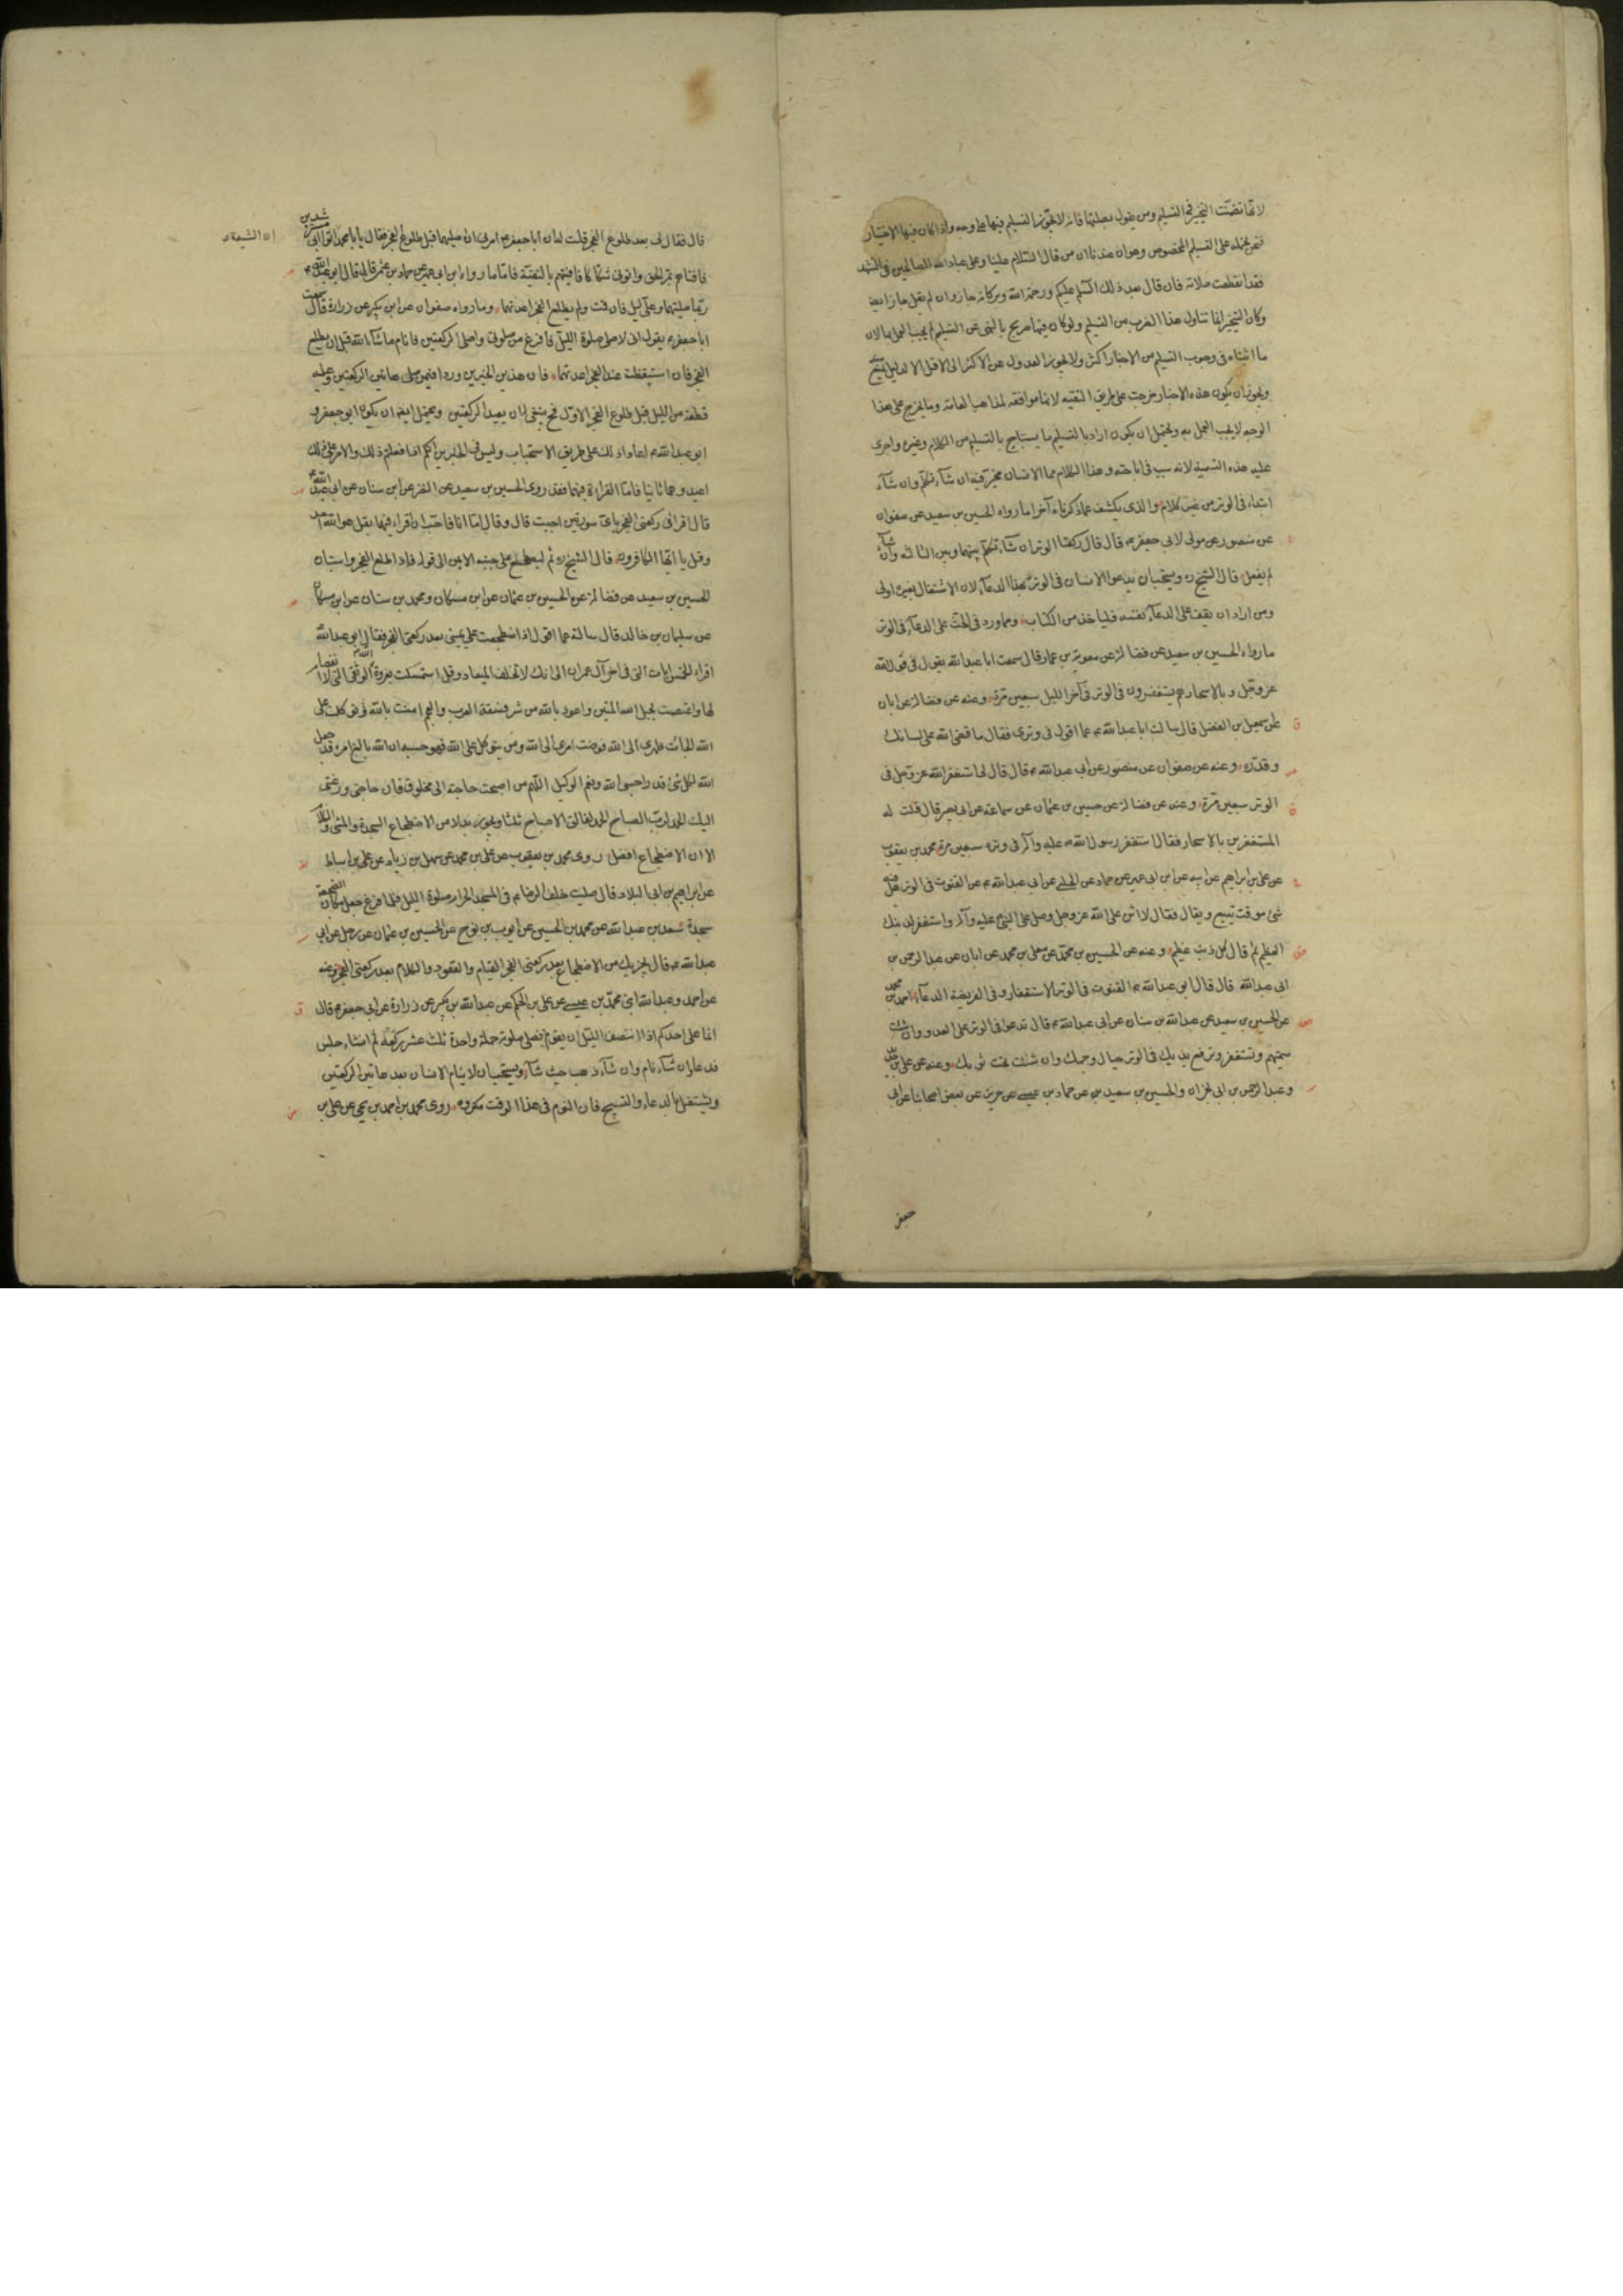 لانها تضمنت التخيير في التسليم ومن يقول بصلتها فانه لا يجوز التسليم فيها على وجه واذا كان فيها الاختيار
فنحن نحمله على التسليم المخصوص وهو ان عندنا ان من قال السلام علينا وعلى عباد الله الصالحين في التشهد
فقد انقطعت صلاته فان قال بعد ذلك السلام عليكم ورحمة الله وبركاته جاز وان لم يقل جاز ايضا
وكان التخيير انما تناول هذا الضرب من التسليم ولو كان فيها صريح بالنهي عن التسليم لم يجب العمل بها لان
ما اثبتناه في وجوب التسليم من الاخبار اكثر ولا يجوز العدول عن الاكثر الى الاقل الا لدليل
ويجوز ان يكون هذه الاخبار خرجت على طريق التقيه لانها موافقه لمذاهب العامه وما يخرج على هذا
الوجه لا يجب العمل به ويحتمل ان يكون اراد بالتسليم ما يستباح بالتسليم من الكلام وغيره واجرى
عليه هذه التسمية لانه سبب في اباحته وهذا الكلام مما الانسان مخير فيه ان شاء تكلم وان شاء
ابتداء في الوتر من غير كلام والذي يكشف عما ذكرناه آخرا ما رواه الحسين بن سعيد عن صفوان
عن منصور عن مولى لابي جعفر ع قال قال ركعتا الوتر ان شاء تكلم بينهما وبين الثالثه وان شاء
لم يفعل قال الشيخ ره ويستحب ان يدعو الانسان في الوتر بهذا الدعاء لان الاشتغال بغيره اولى
ومن اراد ان يقف على الدعاء نفسه فلياخذ من الكتاب ومما ورد في الحث على الدعاء في الوتر
ما رواه الحسين بن سعيد عن فضالة عن معوية بن عمار قال سمعت ابا عبد الله يقول في قول الله
عز وجل وبالاسحار هم يستغفرون في الوتر في آخر الليل سبعين مرة وعنه عن فضالة عن ابان
عن اسمعيل بن الفضل قال سالت ابا عبد الله ع عما اقول في وترى فقال ما قضى الله على لسانك
وقدره وعنه عن صفوان عن منصور عن ابى عبد الله ع قال قال لي استغفر الله عز وجل في
الوتر سبعين مرة وعنه عن فضالة عن حسين بن عثمان عن سماعة عن ابى بصير قال قلت له
المستغفرين بالاسحار فقال استغفر رسول الله ص عليه وآله في وتره سبعين مرة محمد بن يعقوب
عن على بن ابراهيم عن ابيه عن ابن ابى عمير عن حماد عن الحلبي عن ابى عبد الله ع عن القنوت في الوتر هل فيه
شئ موقت يتبع ويقال فقال لا اثن على الله عز وجل وصل على النبي عليه وآله واستغفر لذنبك
العظيم ثم قال كل ذنب عظيم وعنه عن الحسين بن محمد عن معلى بن محمد عن ابان عن عبد الرحمن بن
ابى عبد الله قال قال ابو عبد الله ع القنوت في الوتر الاستغفار وفي الفريضة الدعاء احمد بن محمد
عن الحسين بن سعيد عن عبد الله بن سنان عن ابى عبد الله ع قال تدعو في الوتر على العدو وان شئت
سميتهم وتستغفر وترفع يديك في الوتر حيال وجهك وان شئت تحت ثوبك وعنه عن على بن حديد
وعبد الرحمن بن ابى نجران والحسين بن سعيد عن حماد بن عيسى عن حريز عن بعض اصحابنا عن ابى
جعفر
قال فقال لى بعد طلوع الفجر قلت له ان ابا جعفر ع امرنى ان اصليهما قبل طلوع الفجر فقال يا ابا محمد ان الشيعة اتوا ابى مسترشدين
فافتاهم بمر الحق واتونى شكاكا فافتيتهم بالتقية فاما ما رواه ابن ابى عمير عن حماد بن عثمن قال قال لى ابو عبد الله ع
ربما صليتهما وعلى ليل فان قمت ولم يطلع الفجر اعدتهما وما رواه صفوان عن ابن بكير عن زرارة قال سمعت
ابا جعفر ع يقول انى لاصلى صلوة الليل فافرغ من صلوتى واصلى الركعتين فانام ما شاء الله قبل ان يطلع
الفجر فان استيقظت عند الفجر اعدتهما فان هذين الخبرين وردا فيمن صلى هاتين الركعتين وعليه
قطعة من الليل قبل طلوع الفجر الاول فح ينبغى له ان يعيد الركعتين ويحتمل ايضا ان يكون ابو جعفر و
ابو عبد الله ع اعادا ذلك على طريق الاستحباب وليس فى الخبرين انكم اذا فعلتم ذلك والامر على ذلك
اعيدوهما ثانيا فاما القراءة فيهما فقد روى الحسين بن سعيد عن النضر عن ابن سنان عن ابى عبد الله
قال اقرا فى ركعتى الفجر باى سورتين احببت قال وقال اما انا فاحب ان اقراء فيهما بقل هو الله احد
وقل يا ايها الكافرون قال الشيخ ره ثم ليضطجع على جنبه الايمن الى قوله فاذا طلع الفجر واستبان
الحسين بن سعيد عن فضالة عن الحسين بن عثمان عن ابن مسكان ومحمد بن سنان عن ابن مسكان
عن سليمان بن خالد قال سالته عما اقول اذا اضطجعت على يمينى بعد ركعتى الفجر فقال ابو عبد الله
اقراء الخمس ايات التى فى اخر آل عمران الى انك لا تخلف الميعاد وقل استمسكت بعروة الله الوثقى التى لا انفصام
لها واعتصمت بحبل الله المتين واعوذ بالله من شر فسقة العرب والعجم امنت بالله توكلت على
الله الجات ظهرى الى الله فوضت امرى الى الله ومن يتوكل على الله فهو حسبه ان الله بالغ امره قد جعل
الله لكل شئ قدرا حسبى الله ونعم الوكيل اللهم من اصبحت حاجته الى مخلوق فان حاجتى ورغبتى
اليك الحمد لرب الصباح الحمد لفالق الاصباح ثلثا ويجوز بدلا من الاضطجاع السجدة والمشى والكلام
الا ان الاضطجاع افضل روى محمد بن يعقوب عن على بن محمد عن سهل بن زياد عن على بن اسباط
عن ابراهيم بن ابى البلاد قال صليت خلف الرضا ع فى المسجد الحرام صلوة الليل فلما فرغ جعل مكان الضجعة
سجدة سعد بن عبد الله عن محمد بن الحسين عن ايوب بن نوح عن الحسين بن عثمان عن رجل عن ابى
عبد الله ع قال يجزيك من الاضطجاع بعد ركعتى الفجر القيام والقعود والكلام بعد ركعتى الفجر وعنه
عن احمد وعبد الله ابنى محمد بن عيسى عن على بن الحكم عن عبد الله بن بكير عن زرارة عن ابى جعفر ع قال
انما على احدكم اذا انتصف الليل ان يقوم فيصلى صلوته جملة واحدة ثلث عشر ركعة ثم ان شاء جلس
فدعا وان شاء نام وان شاء ذهب حيث شاء ويستحب ان لا ينام الانسان بعد هاتين الركعتين
ويشتغل بالدعاء والتسبيح فان النوم فى هذا الوقت مكروه روى محمد بن احمد بن يحيى عن على بن